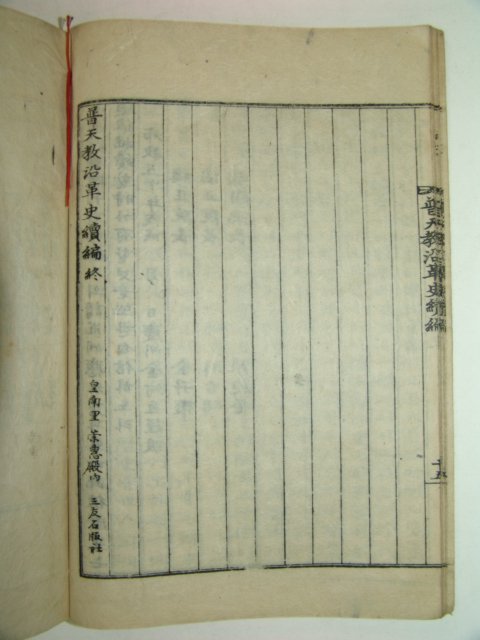 普天教沿革史續編 十五
普天教沿革史續編終 皇南里 崇惠殿內 三友石版社